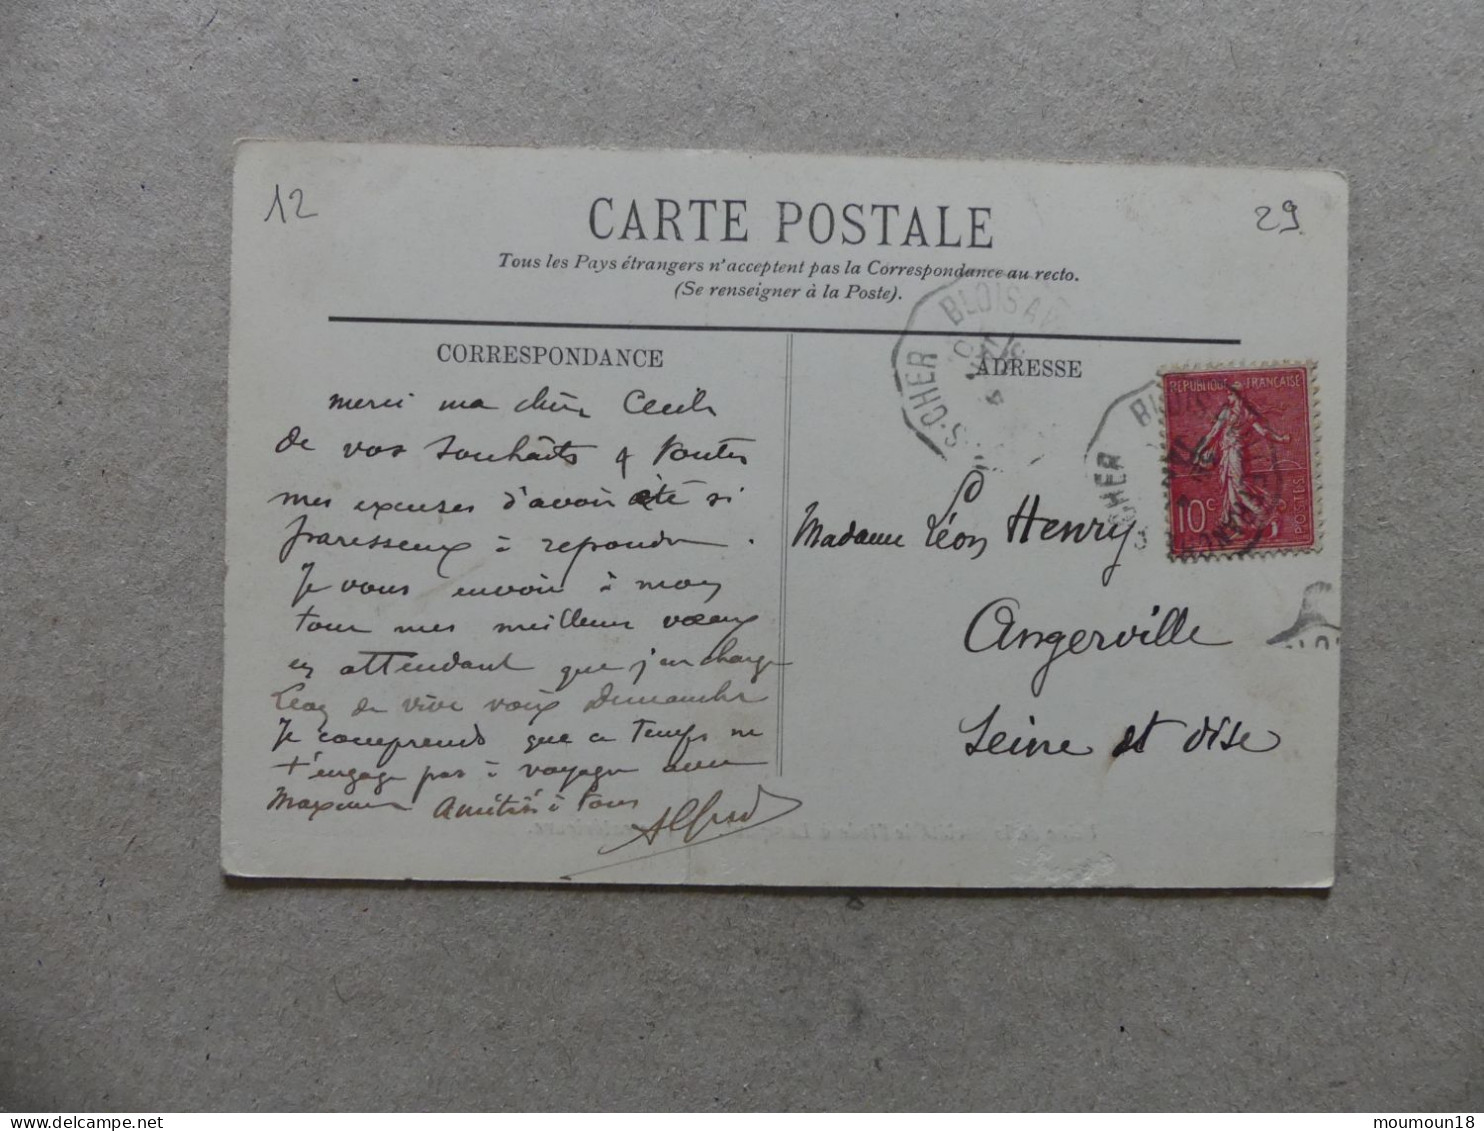 12
29
CARTE POSTALE
Tous les Pays étrangers n'acceptent pas la Correspondance au recto.
(Se renseigner à la Poste).
CORRESPONDANCE
merci ma chère Cecile
de vos souhaits & toutes
mes excuses d'avoir été si
paresseux à répondre.
Je vous envoie à mon
tour mes meilleurs vœux
en attendant que j'en charge
Léon de vive voix Dimanche
Je comprends que ce temps ne
t'engage pas à voyager avec
Maxime Amitiés à tous
Alfred
ADRESSE
BLOIS A V
S-CHER
REPUBLIQUE FRANÇAISE
10c
POSTES
BLOIS
CHER
Madame Léon Henry
Angerville
Seine et Oise
moumoun18